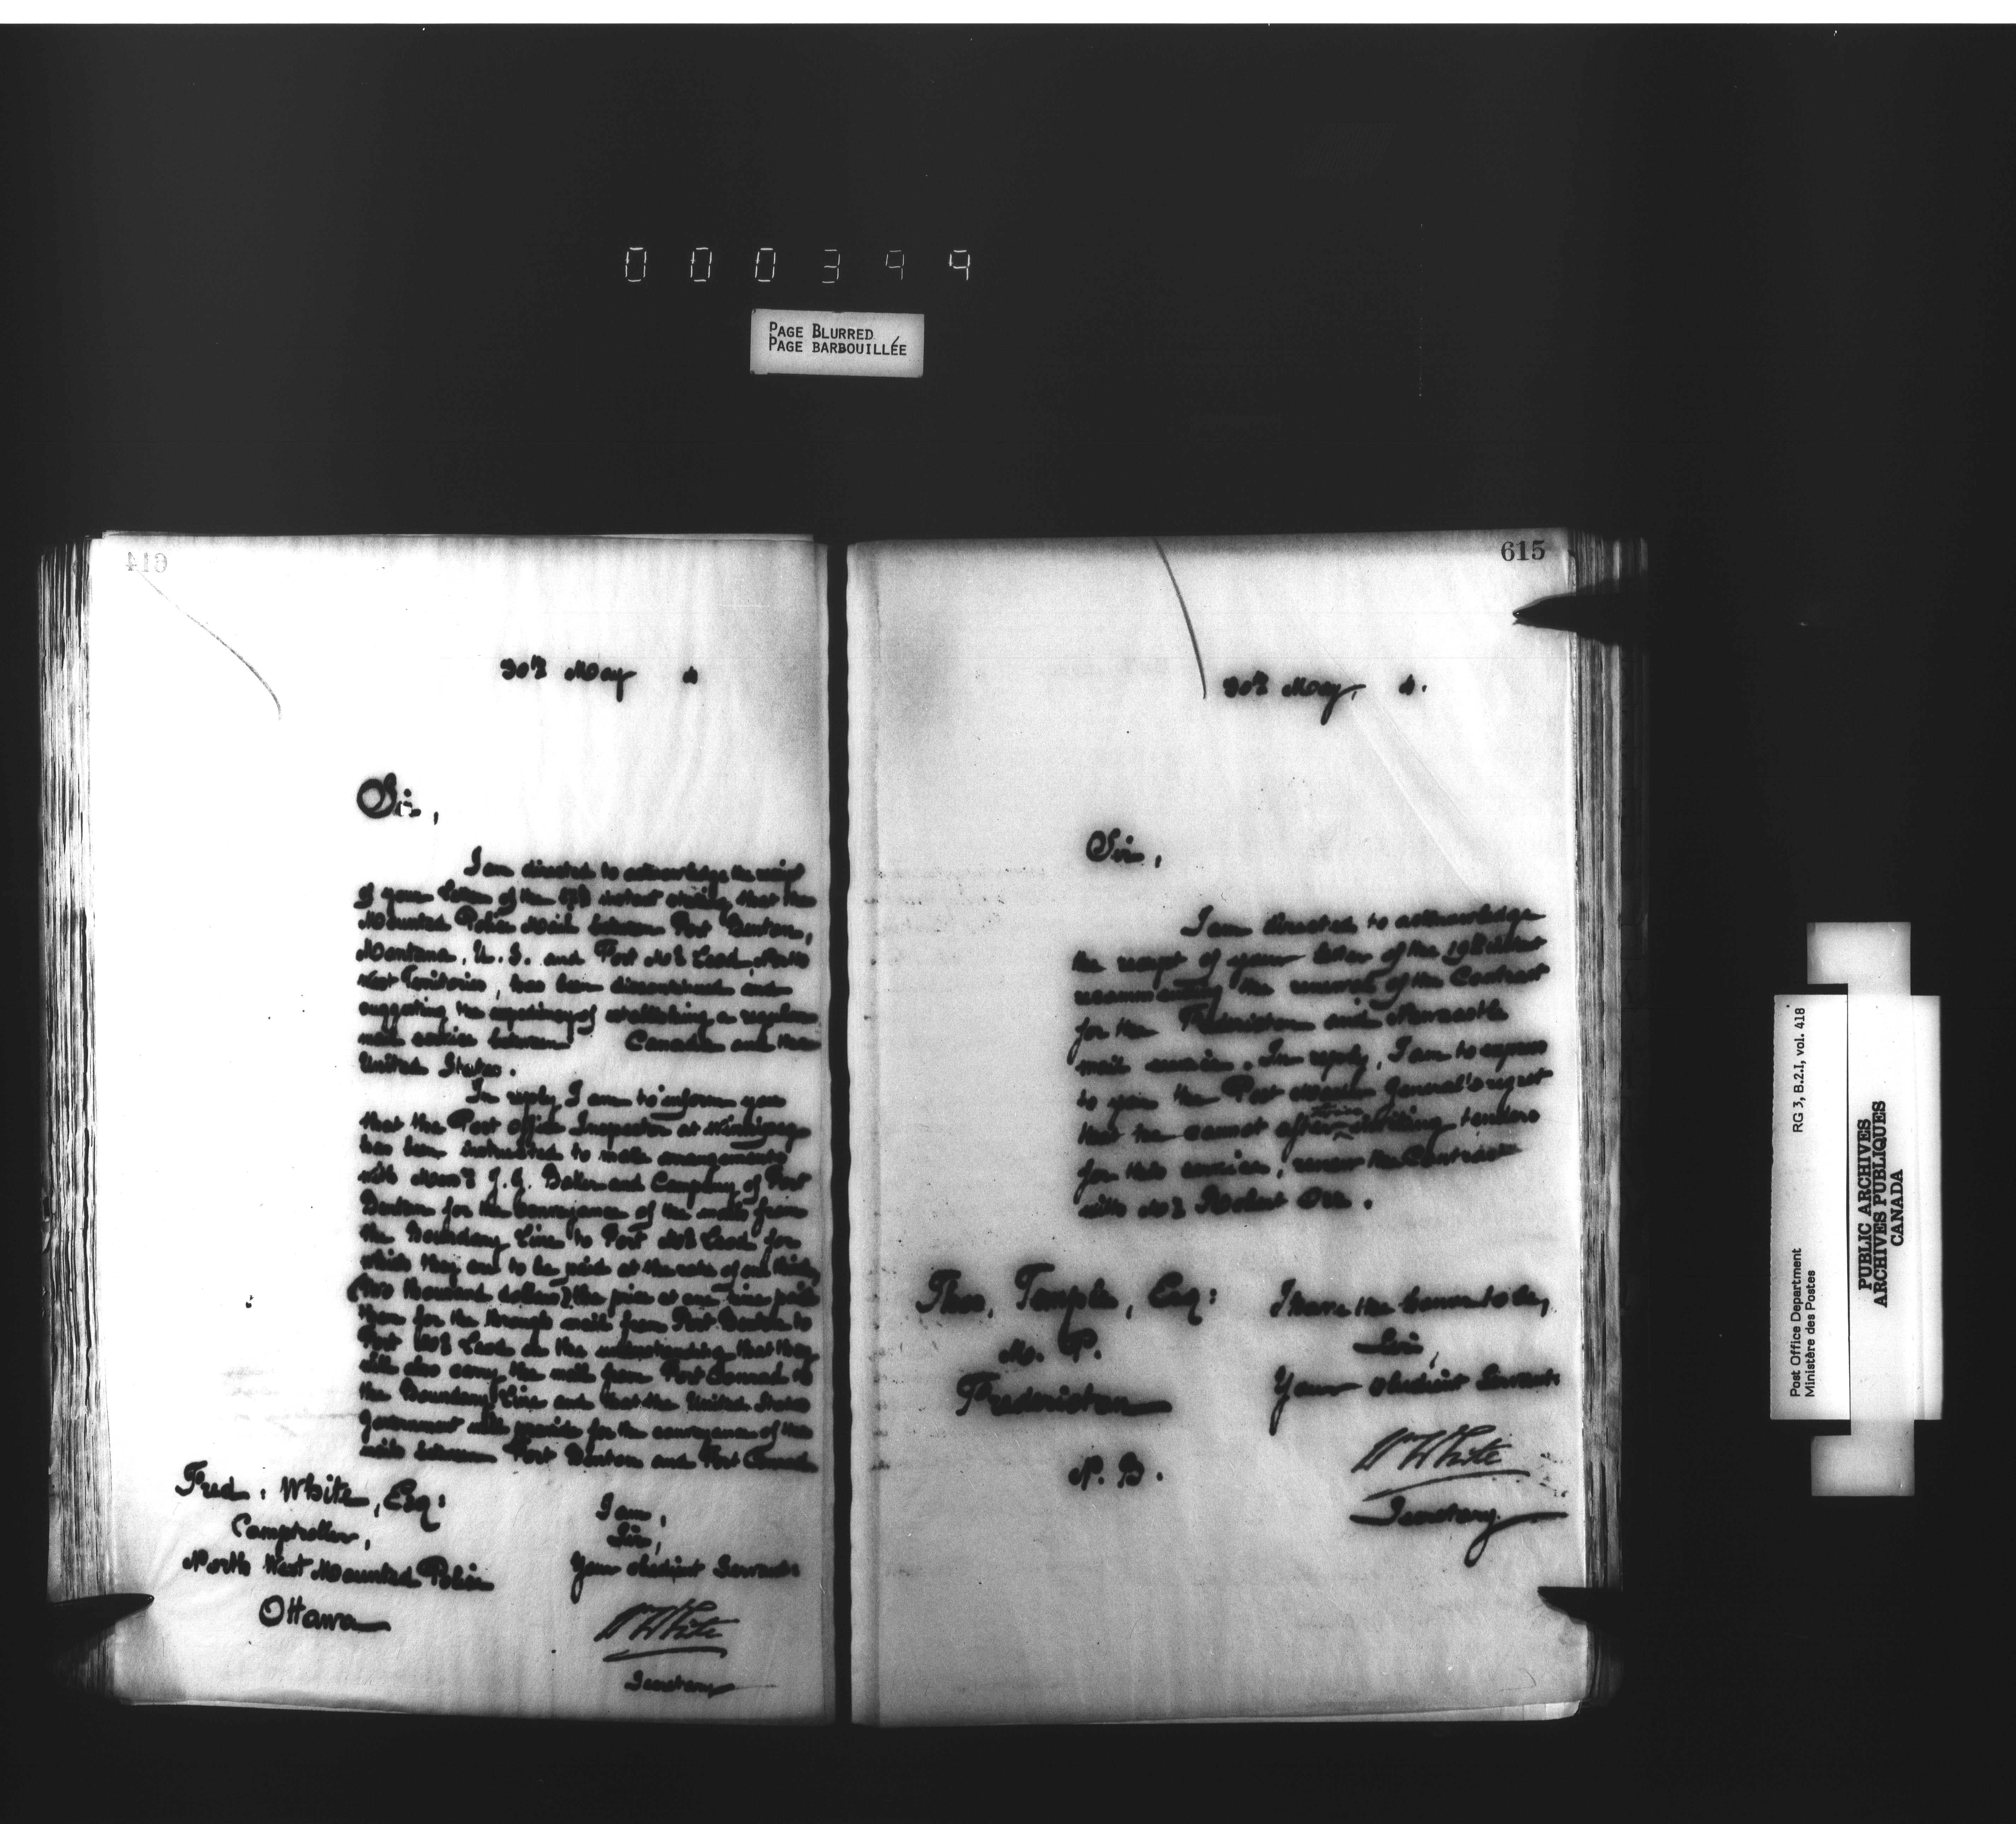 000399
PAGE BLURRED
PAGE BARBOUILLÉE
614
30th May 4
Sir,
I am directed to acknowledge the receipt
of your letter of the 17th instant stating that the
Mounted Police Mail between Fort Benton,
Montana, U.S. and Fort McLeod, North
West Territories, has been discontinued and
suggesting the expediency of establishing a regular
mail service between Canada and the
United States.
In reply I am to inform you
that the Post Office Inspector at Winnipeg
has been instructed to make arrangements
with Messrs J. G. Baker and Company of Fort
Benton for the conveyance of the mails from
the Boundary Line to Fort McLeod for
which they are to be paid at the rate of one third
(two thousand dollars) the price at one time paid
them for the through mail from Fort Benton to
Fort McLeod on the understanding that they
will also carry the mail from Fort Conrad to
the Boundary Line and that the United States
Government will provide for the conveyance of the
mails between Fort Benton and Fort Conrad
Fred. White, Esq:
Comptroller,
North West Mounted Police
Ottawa
I am,
Sir,
Your obedient Servant
Wm White
Secretary
615
30th May, 4.
Sir,
I am directed to acknowledge
the receipt of your letter of the 19th instant
recommending the renewal of the Contract
for the Fredericton and Newcastle
mail service. In reply, I am to express
to you the Post Master General's regret
that he cannot after inviting tenders
for this service, renew the Contract
with Mr Robert Orr.
Thos. Temple, Esq:
M. P.
Fredericton
N. B.
I have the honor to be,
Sir,
Your obedient Servant
Wm White
Secretary
RG 3, B.2.I, vol. 418
Post Office Department
Ministère des Postes
PUBLIC ARCHIVES
ARCHIVES PUBLIQUES
CANADA